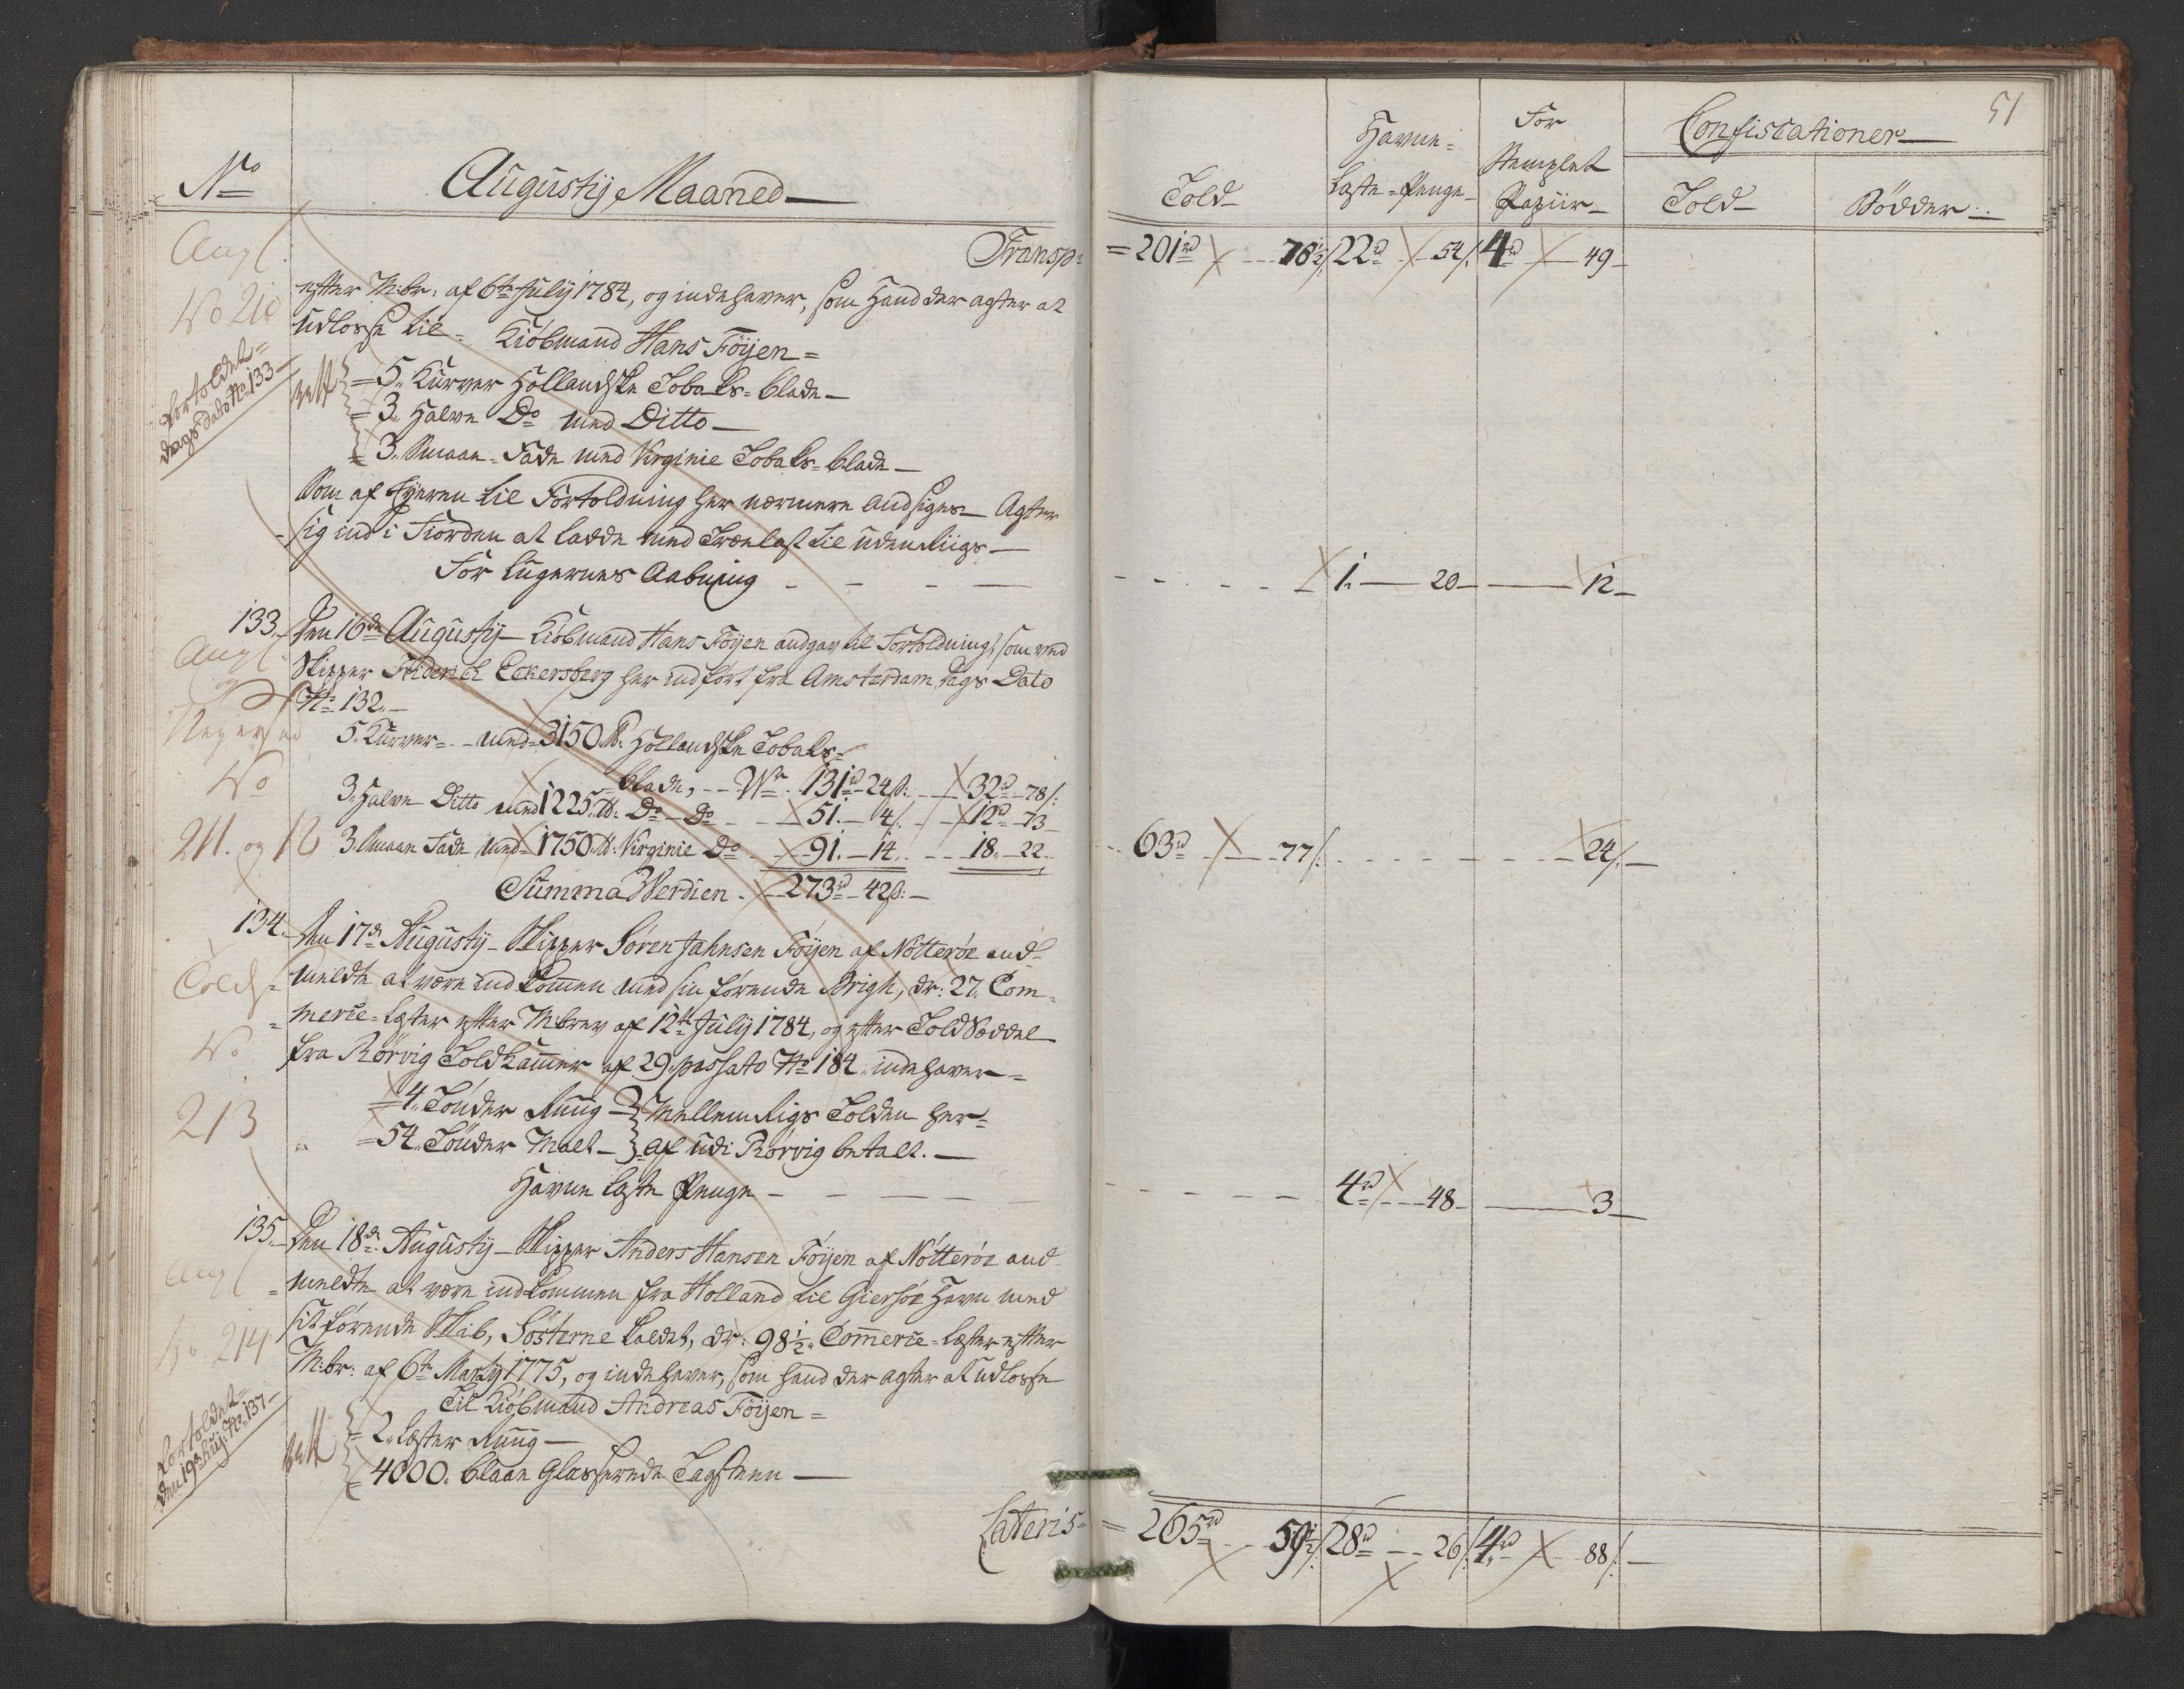 51
No
Augustij Maaned
Told
Havne=
Laste=Penge
For
Stemplet
Papiir
Confiscationer
Told
Bödder
Transp:
= 201rd 78½/: 22rd 54/: 4rd 49
Ang
No 210
efter M:br: af 6te July 1784, og indehaver, som hand der agter at
udlosse til= Kiöbmand Hans Föijen=
fortoldet=
dags dato No 133
= 5. Kurver Hollandske Tobaks=blade
= 3. halve Do med Ditto
= 3. Smaae=Fade med Virginie Tobaks=blade
Som af Eyeren til Fortoldning her nærmere andsiges. Agter
sig ind i Fiorden at ladde med Trælast til udenRiigs
For Lugernes Aabning 1. 20 12
133.
Ang
og
Reg
No
211. og 12
Den 16de Augustij Kiöbmand Hans Föijen andgav til Fortoldning, som med
Skipper Friderich Eckersberg her indfört fra Amsterdam dags Dato
No 132.
5. Kurver med 3150 ℔. Hollandske Tobaks=
blade, Wr. 131rd 24ß: 32rd 78/:
3. halve Ditto med 1225 ℔: Do Do 51. 4/. 12rd 73
3. Smaae Fade med 1750 ℔. Virginie Do 91. 14. 18. 22
63rd 77/: 24/.
Summa Werdien. 273rd 42ß:
134.
Told
No
213
Den 17de Augusty Skipper Sören Jahnsen Föijen af Nötteröe and=
meldte at være ind kommen med sin förende Brigh, dr: 27. Com=
merce=Læster efter M:brev af 12te July 1784, og efter ToldSeddel
fra Rörvig Toldkammer af 29. passato No 184. indehaver=
= 4. Tönder Ruug } MellemRigs Tolden her=
= 54. Tönder Malt } af udi Rörvig betalt.
Havne Laste Penge 4rd 48 3
135.
Ang
No. 214
Den 18de Augustij Skipper Anders Hansen Föijen af Nötteröe and=
meldte at være indkommen fra Holland til Giersöe Havn med
sit förende Skib, Söstterne kaldet, dr: 98½. Commerce=Læster efter
M:br: af 6te Marty 1775, og indehaver, som hand der agter at udlosse
Til Kiöbmand Andreas Föijen=
fortoldet
den 19de huj: No 137
= 2. Læster Ruug
= 4000. blaae Glasserede Tagsteene
Lateris= = 265rd 59½/: 28rd 26/: 4rd 88/: